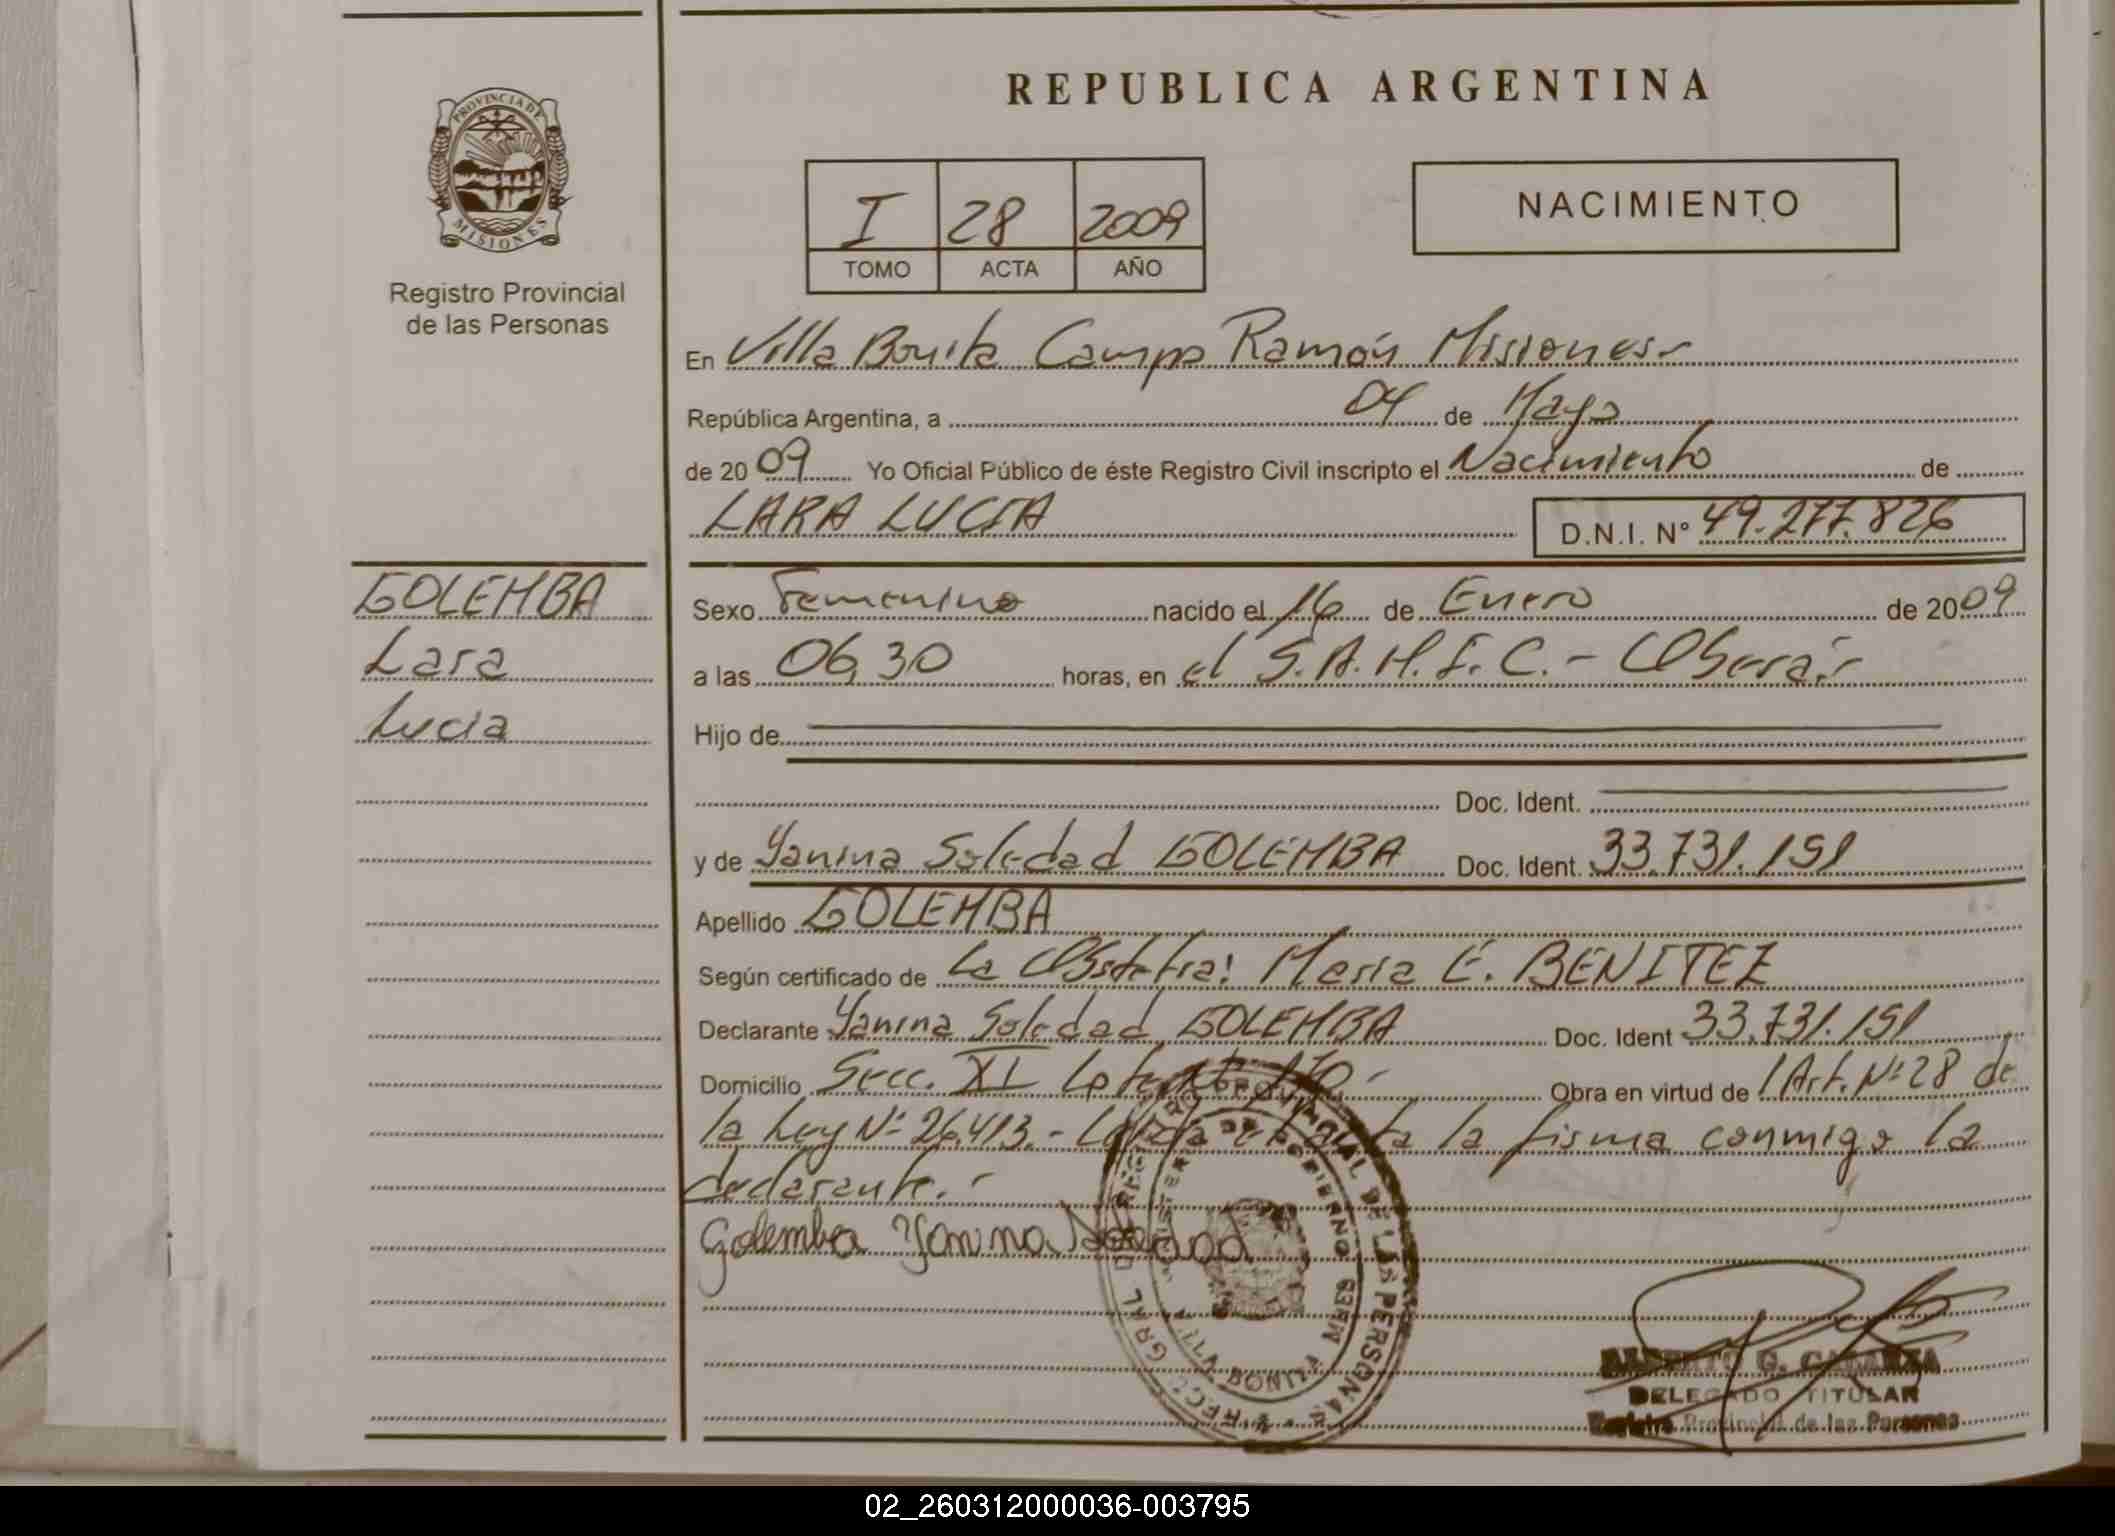 REPUBLICA ARGENTINA
PROVINCIA DE
MISIONES
Registro Provincial
de las Personas
I 28 2009
TOMO ACTA AÑO
NACIMIENTO
En Villa Bonita Campo Ramón Misiones.-
República Argentina, a 04 de Mayo
de 2009 Yo Oficial Público de éste Registro Civil inscripto el Nacimiento de
LARA LUCIA D.N.I. N° 49.277.826
GOLEMBA
Lara
Lucia
Sexo Femenino nacido el 16 de Enero de 2009
a las 06,30 horas, en el S.A.M.I.C.- Oberá.-
Hijo de
Doc. Ident.
y de Yanina Soledad GOLEMBA Doc. Ident. 33.731.151
Apellido GOLEMBA
Según certificado de La Obstetra: Maria E. BENITEZ
Declarante Yanina Soledad GOLEMBA Doc. Ident 33.731.151
Domicilio Secc. XI Lote 170.- Obra en virtud de /Art. N° 28 de
la Ley N° 26.413.- Leída el acta la firma conmigo la
declarante.-
Golemba Yanina Soledad
PROVINCIAL DE LAS PERSONAS
DE GOBIERNO
VILLA BONITA
ALBERTO G.
DELEGADO TITULAR
Registro Provincial de las Personas
02_260312000036-003795